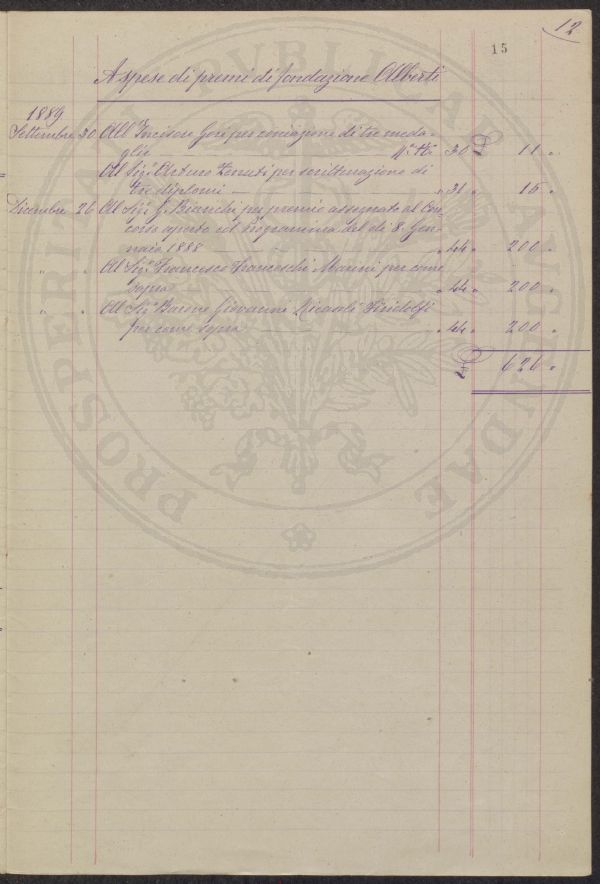 12
15
A spese di premi di fondazione Alberti
1889
Settembre 30 All'Incisore Gori per coniazione di tre meda-
glie 30 " 11 "
Al Sigr. Arturo Zenuti per scritturazione di
tre diplomi — " 31 " 15 "
Dicembre 26 Al Sigr. G. Bianchi per premio assegnato al Con-
corso aperto col Programma del dì 8 Gen-
naio 1888 " 44 " 200 "
" " Al Sigr. Francesco Franceschi Marini per come
sopra " 44 " 200 "
" " Al Sigr. Barone Giovanni Ricasoli Firidolfi
per come sopra " 44 " 200 "
626 "
PROSPERITATI PUBLICAE AUGENDAE